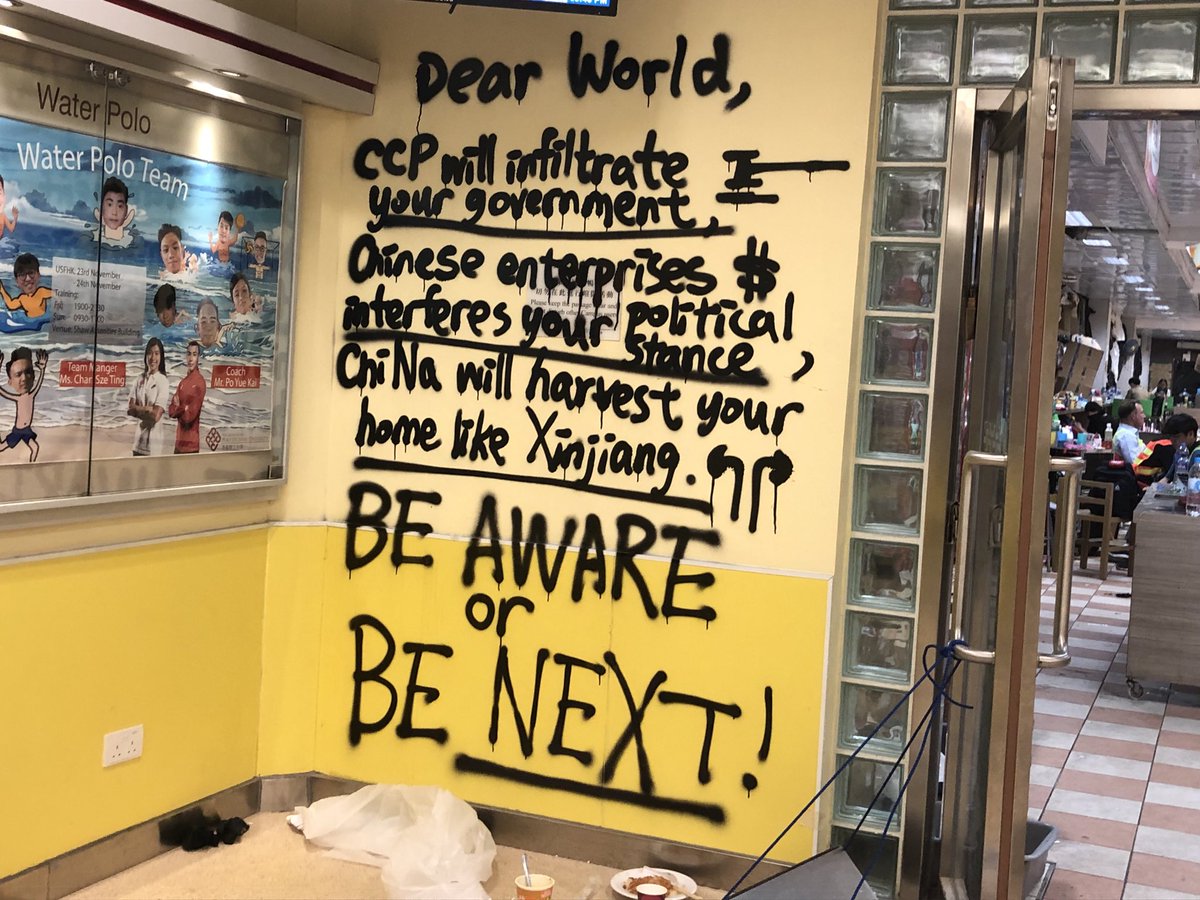 Water Polo
Water Polo Team
USFHK: 23rd November
24th November
Training:
1900-2130
Sun 0930-
Venue: Shaw Amenities Building
Team Manger
Ms. Chan Sze Ting
Coach
Mr. Po Yue Kai
Dear World,
CCP will infiltrate
your government,
Chinese enterprises $
interferes your political
stance,
ChiNa will harvest your
home like Xinjiang.
BE AWARE
or
BE NEXT!
Please keep the passage clear and